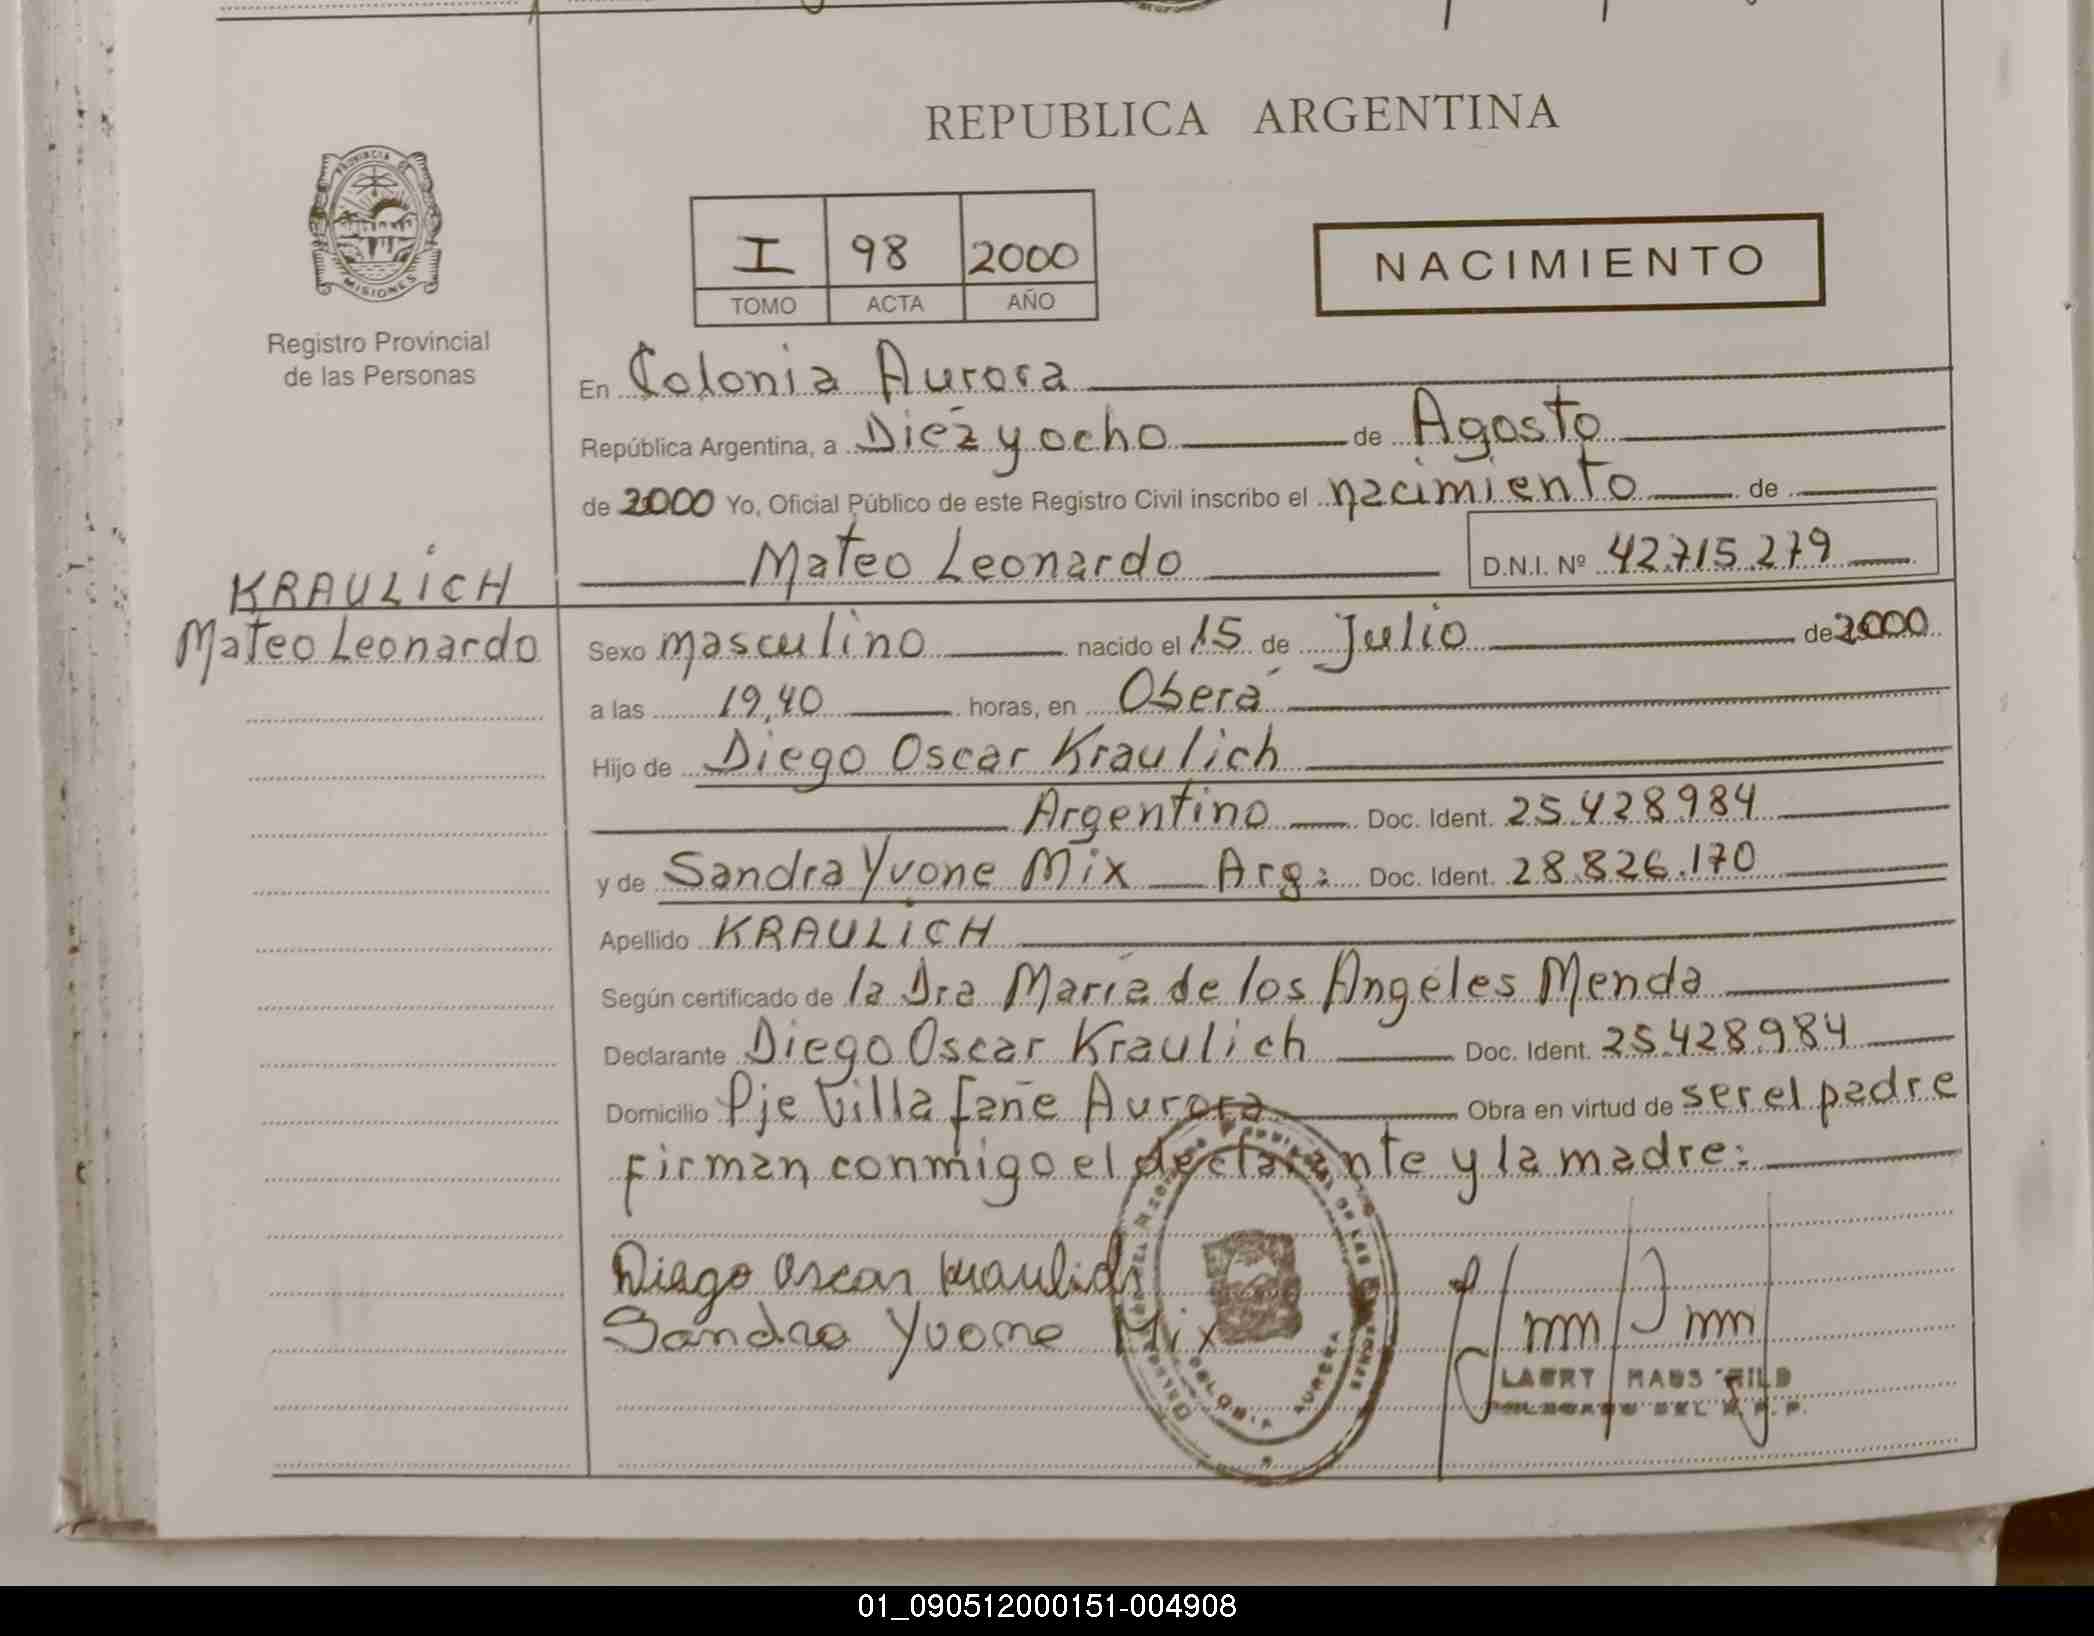 REPUBLICA ARGENTINA
PROVINCIA DE
MISIONES
Registro Provincial
de las Personas
I 98 2000
TOMO ACTA AÑO
NACIMIENTO
En Colonia Aurora
República Argentina, a Diez y ocho de Agosto
de 2000 Yo, Oficial Público de este Registro Civil inscribo el nacimiento de
Mateo Leonardo D.N.I. Nº 42.715.279
KRAULiCH
Mateo Leonardo
Sexo masculino nacido el 15 de Julio de 2000
a las 19,40 horas, en Oberá
Hijo de Diego Oscar Kraulich
Argentino Doc. Ident. 25.428.984
y de Sandra Yvone Mix Arg: Doc. Ident. 28.826.170
Apellido KRAULiCH
Según certificado de la Dra María de los Angeles Menda
Declarante Diego Oscar Kraulich Doc. Ident. 25.428.984
Domicilio Pje Villafañe Aurora Obra en virtud de ser el padre
firman conmigo el declarante y la madre:
Diego Oscar Kraulich
Sandra Yvone Mix
COLONIA AURORA
01_090512000151-004908